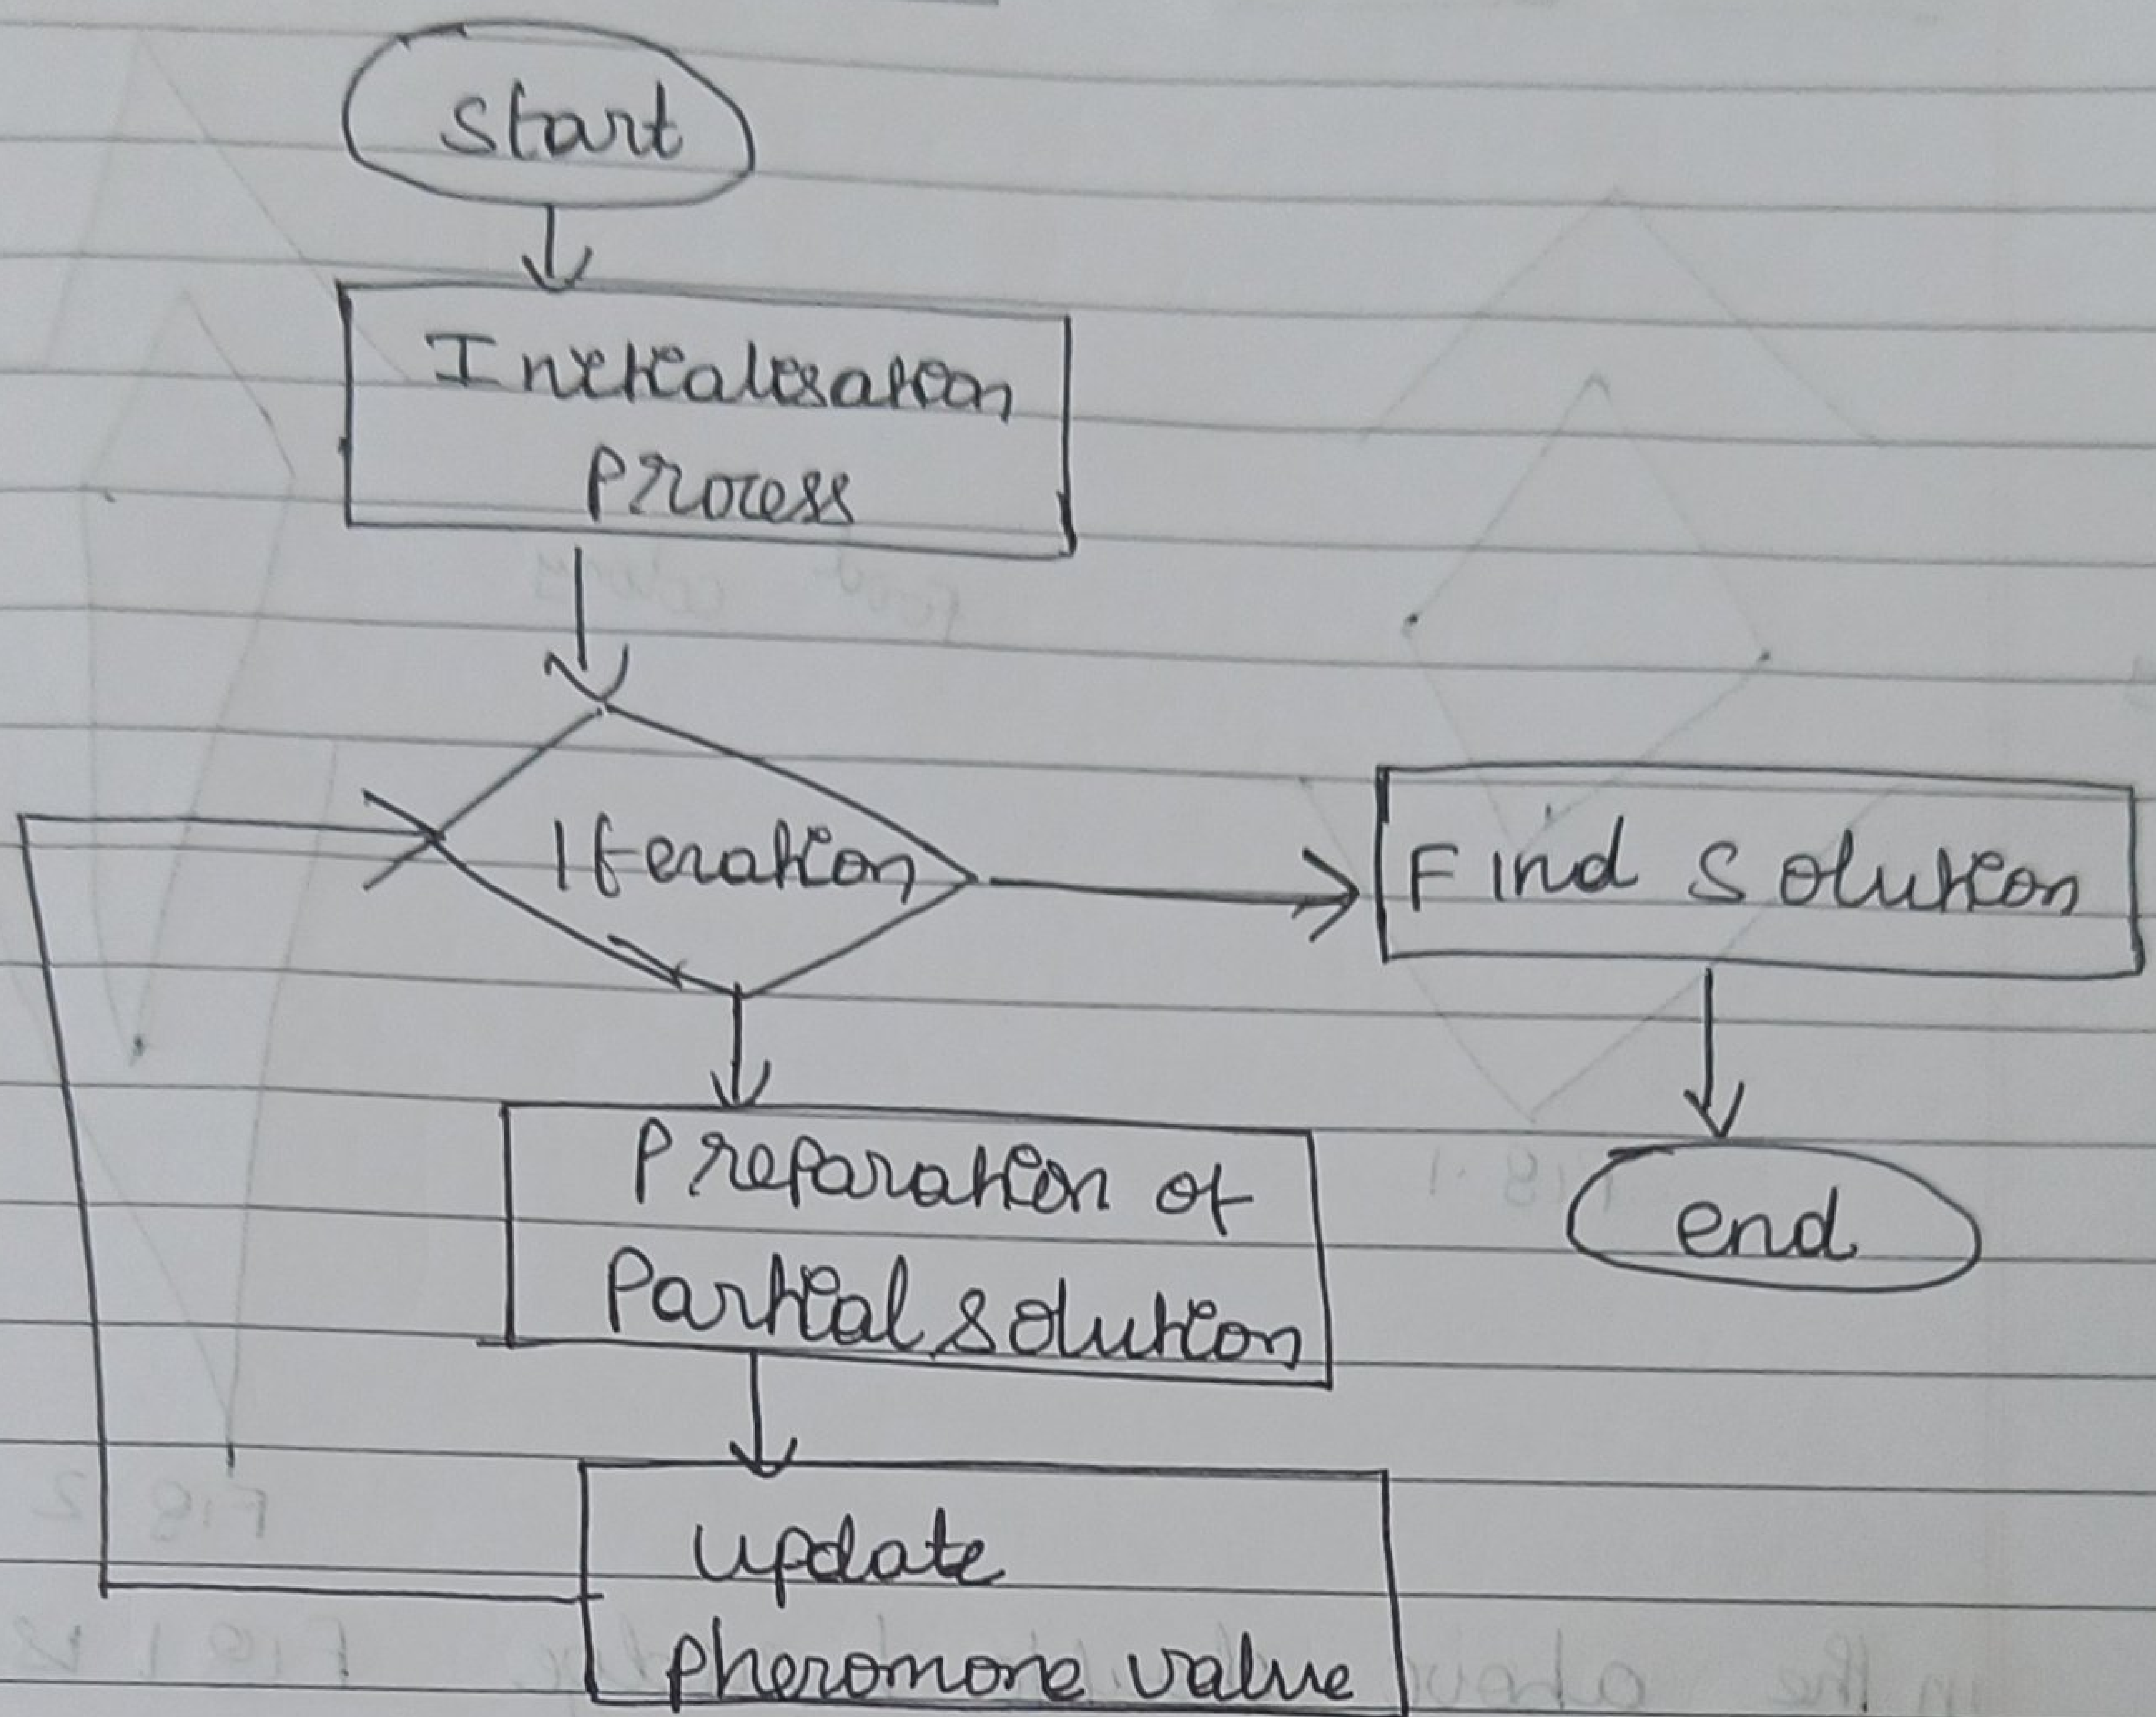 Start
Initialisation
Process
Iteration
Find Solution
Preparation of
Partial solution
end
update
pheromone value